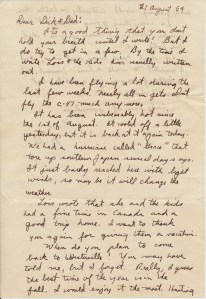 21 August 59
Dear Dick & Dad:
It is a good thing that you don't
hold your breath until I write! But I
do try to get in a few. By the time I
write Lois & the kids I'm usually written
out.
I have been flying a lot during the
last few weeks. Nearly all in gets. don't
fly the C-47 much any more.
It has been unbearably hot since
the 1st of August. It cooled off a little
yesterday, but it is back at it again today.
We had a hurricane called "Gena" that
tore up southern Japan several days ago.
It just barely reached here with light
winds, so now do it will change the
weather.
Lois wrote that she and the kids
had a fine time in Canada and a
good trip home. I want to thank
you again for giving them a vacation.
When do you plan to come
back to You may have
told me, but I forget. Really, I guess
the best time of the year is in the
fall. I would enjoy it the most. Hunting